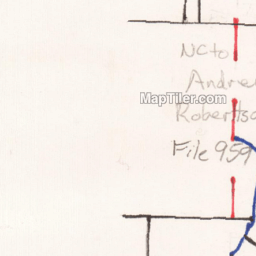 NC to
Andre
MapTiler.com
Robertso
File 959